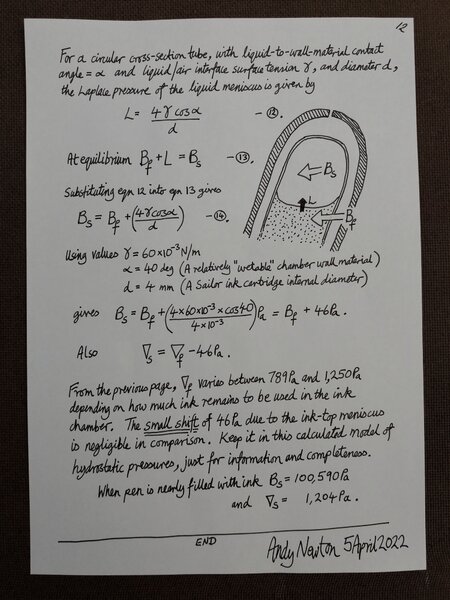 12
For a circular cross-section tube, with liquid-to-wall-material contact
angle = α and liquid/air interface surface tension γ, and diameter d,
the Laplace pressure of the liquid meniscus is given by
L = 4γcosα / d — ⑫.
At equilibrium B_f + L = B_s — ⑬.
Substituting eqn 12 into eqn 13 gives
B_s = B_f + (4γcosα / d) — ⑭.
B_s
L
B_f
Using values γ = 60×10⁻³ N/m
α = 40 deg (A relatively "wetable" chamber wall material)
d = 4 mm (A Sailor ink cartridge internal diameter)
gives B_s = B_f + (4×60×10⁻³×cos40 / 4×10⁻³) Pa = B_f + 46Pa.
Also ∇_s = ∇_f − 46Pa.
From the previous page, ∇_f varies between 789Pa and 1,250Pa
depending on how much ink remains to be used in the ink
chamber. The small shift of 46Pa due to the ink-top meniscus
is negligible in comparison. Keep it in this calculated model of
hydrostatic pressures, just for information and completeness.
When pen is nearly filled with ink B_s = 100,590Pa
and ∇_s = 1,204Pa.
END
Andy Newton 5April2022